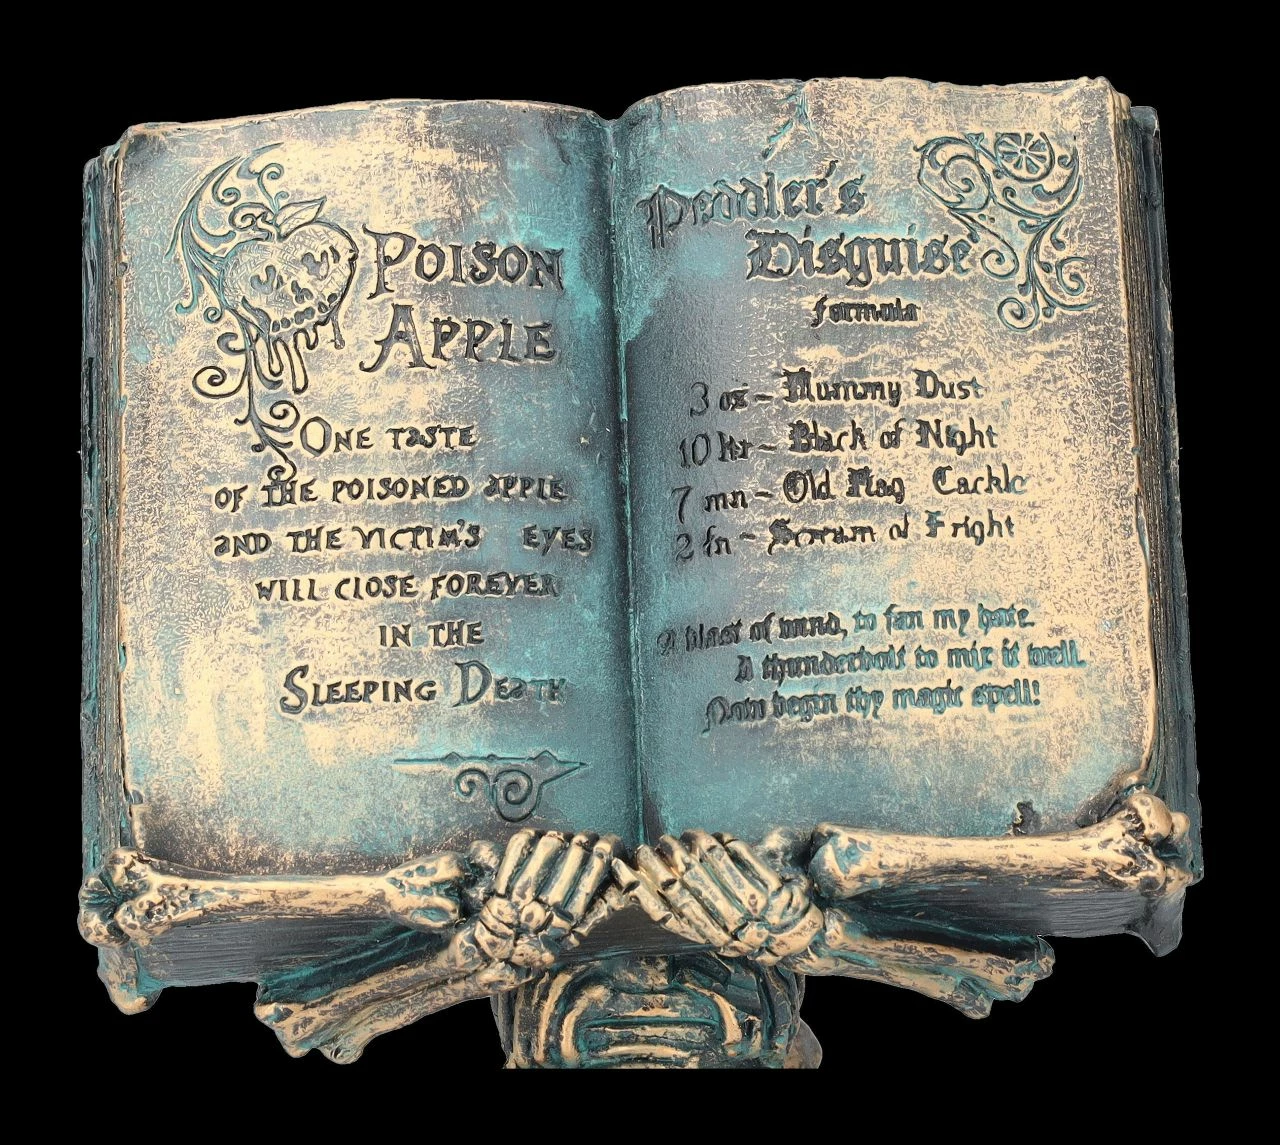 POISON
APPLE
ONE TASTE
OF THE POISONED APPLE
AND THE VICTIM'S EYES
WILL CLOSE FOREVER
IN THE
SLEEPING DEATH
Peddler's
Disguise
formula
3 oz - Mummy Dust
10 - Black of Night
7 mn - Old Hag Cackle
2 - Scream of Fright
A blast of wind, to fan my hate.
A thunderbolt to mix it well.
Now begin thy magic spell!